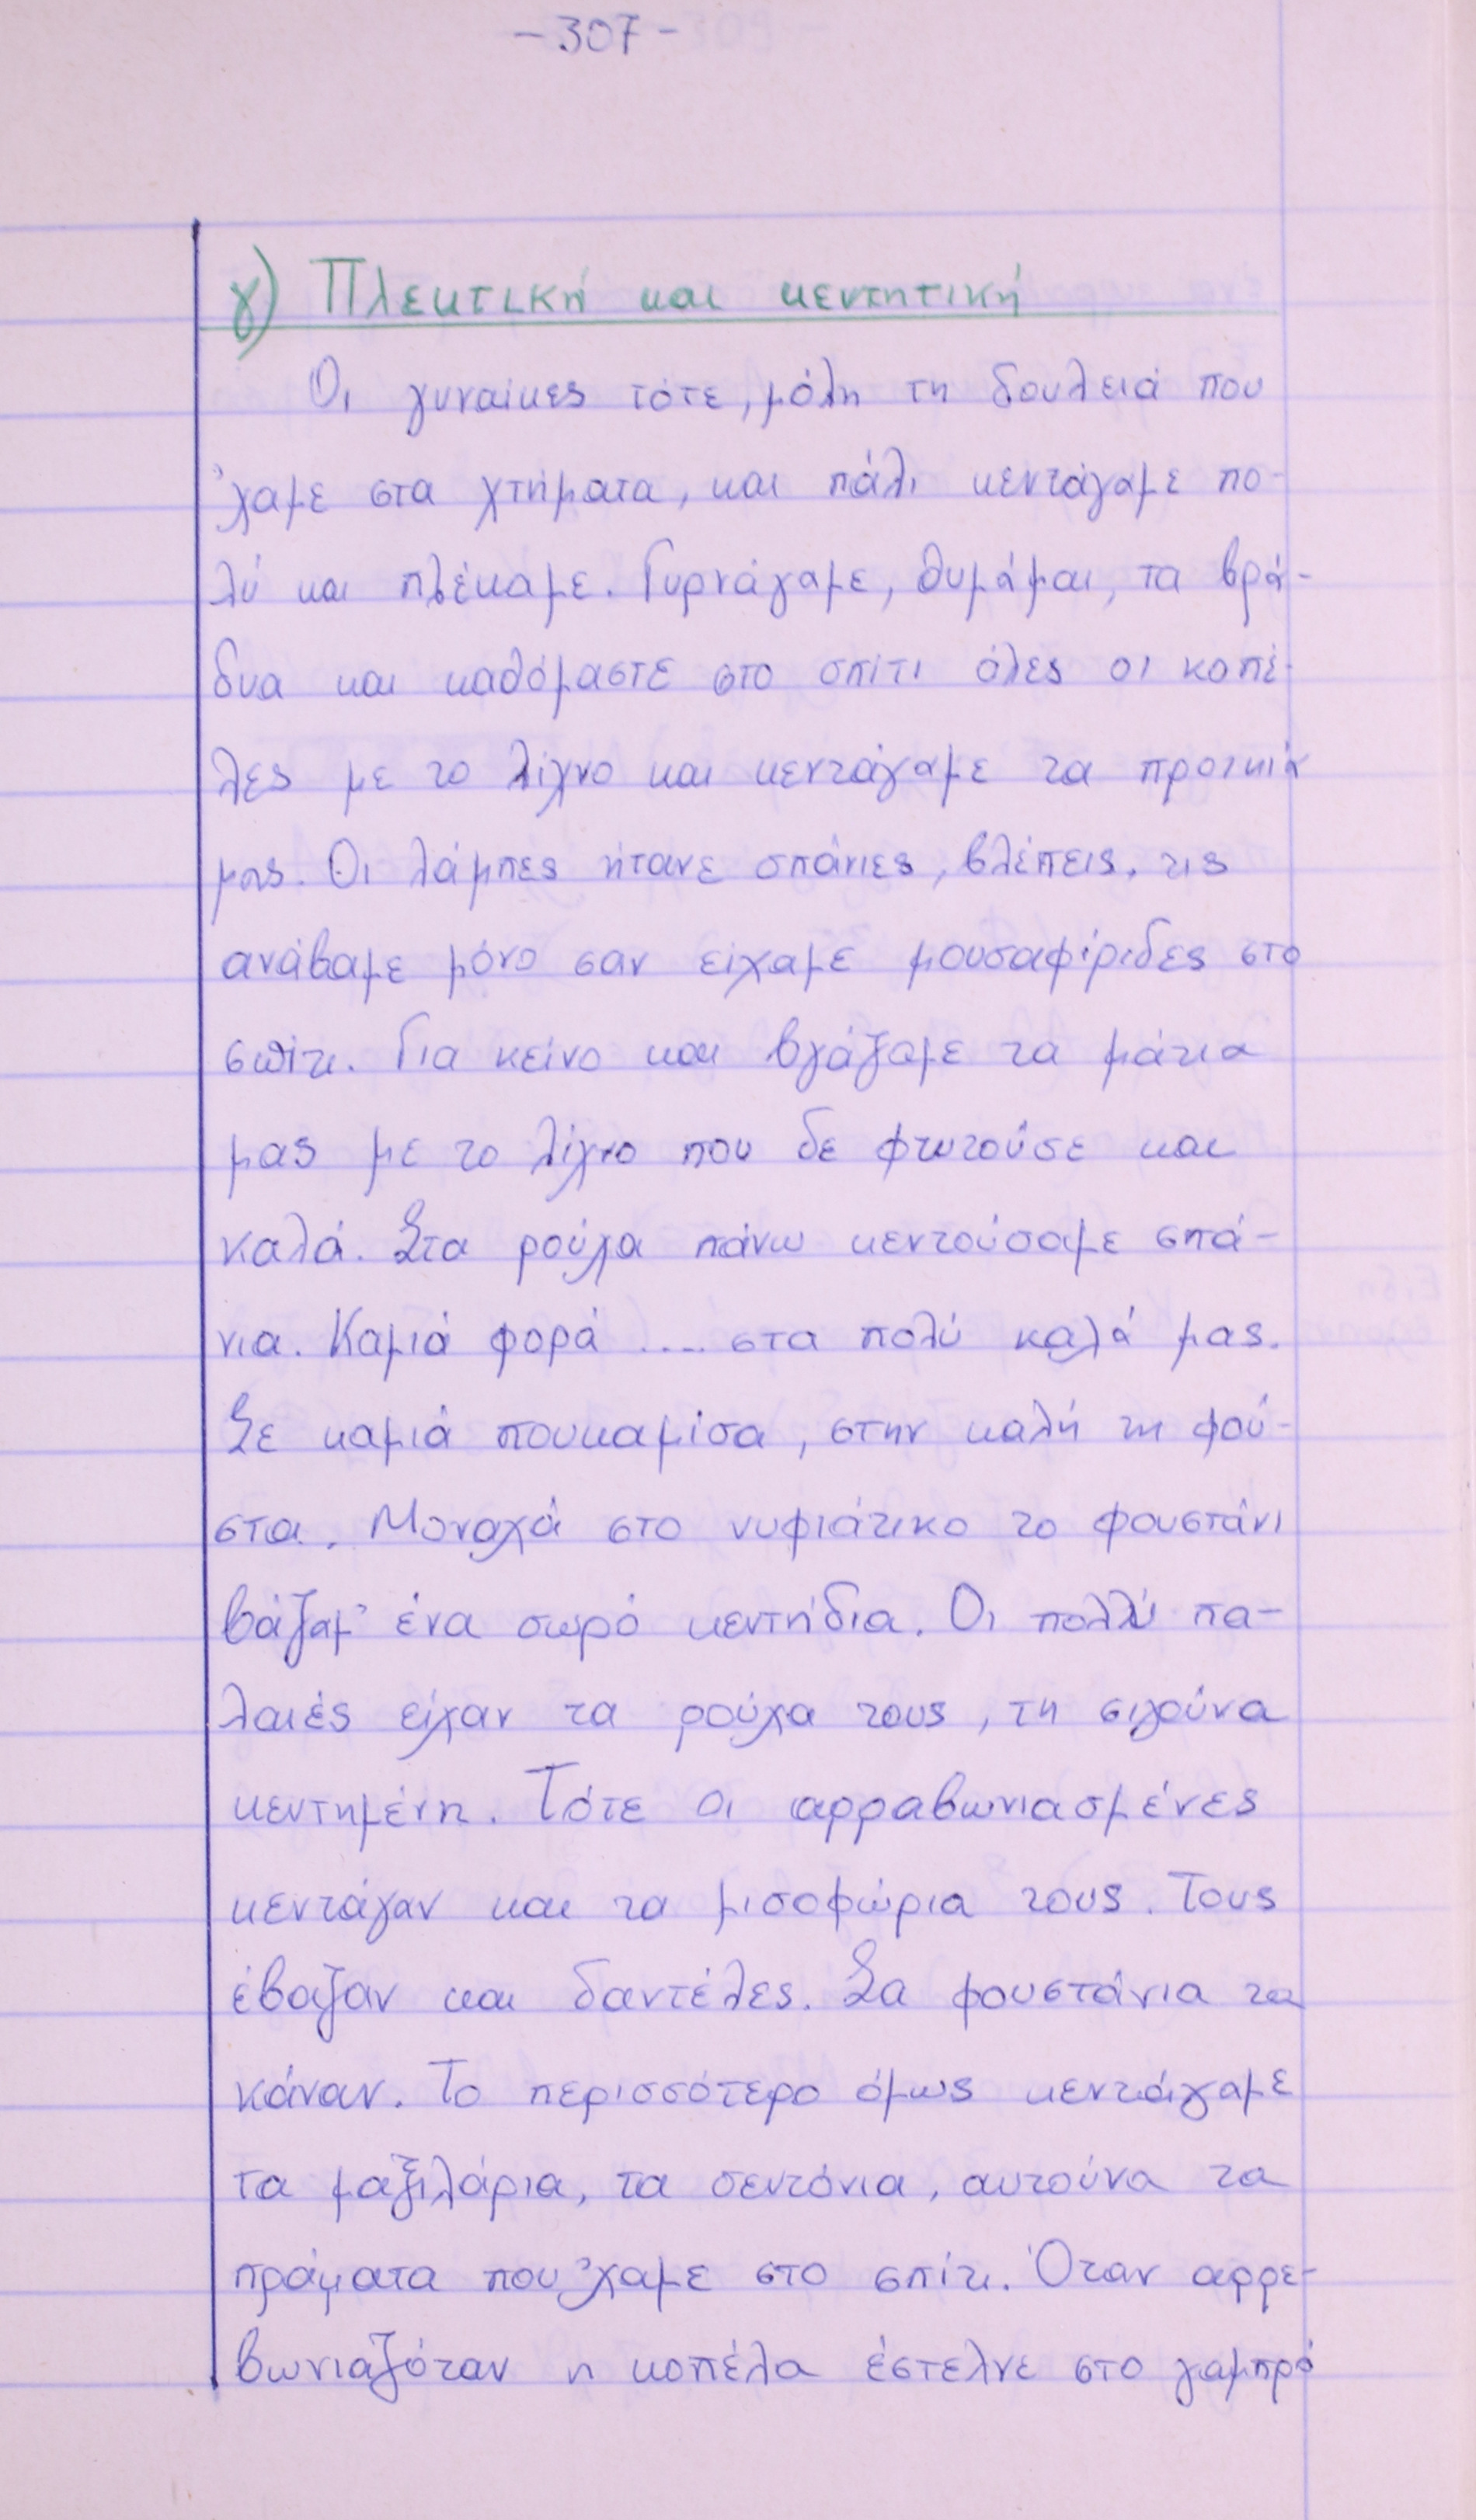 -307-
γ) Πλεκτική και κεντητική
Οι γυναίκες τότε, μόλη τη δουλειά που
'χαμε στα χτήματα, και πάλι κεντάγαμε πο-
λύ και πλέκαμε. Γυρνάγαμε, θυμάμαι, τα βρά-
δυα και καθόμαστε στο σπίτι όλες οι κοπέ-
λες με το λίχνο και κεντάγαμε τα προικιά
μας. Οι λάμπες ήτανε σπάνιες, βλέπεις, τις
ανάβαμε μόνο σαν είχαμε μουσαφίριδες στο
σπίτι. Για κείνο και βγάζαμε τα μάτια
μας με το λίχνο που δε φωτούσε και
καλά. Στα ρούχα πάνω κεντούσαμε σπά-
νια. Καμιά φορά .... στα πολύ καλά μας.
Σε καμιά πουκαμίσα, στην καλή τη φού-
στα. Μοναχά στο νυφιάτικο το φουστάνι
βάζαμ' ένα σωρό κεντήδια. Οι πολλύ πα-
λαιές είχαν τα ρούχα τους, τη σιγούνα
κεντημένη. Τότε οι αρραβωνιασμένες
κεντάγαν και τα μισοφώρια τους. Τους
έβαζαν και δαντέλες. Σα φουστάνια τα
κάναν. Το περισσότερο όμως κεντάγαμε
τα μαξιλάρια, τα σεντόνια, αυτούνα τα
πράματα που 'χαμε στο σπίτι. Όταν αρρε-
βωνιαζόταν η κοπέλα έστελνε στο γαμπρό